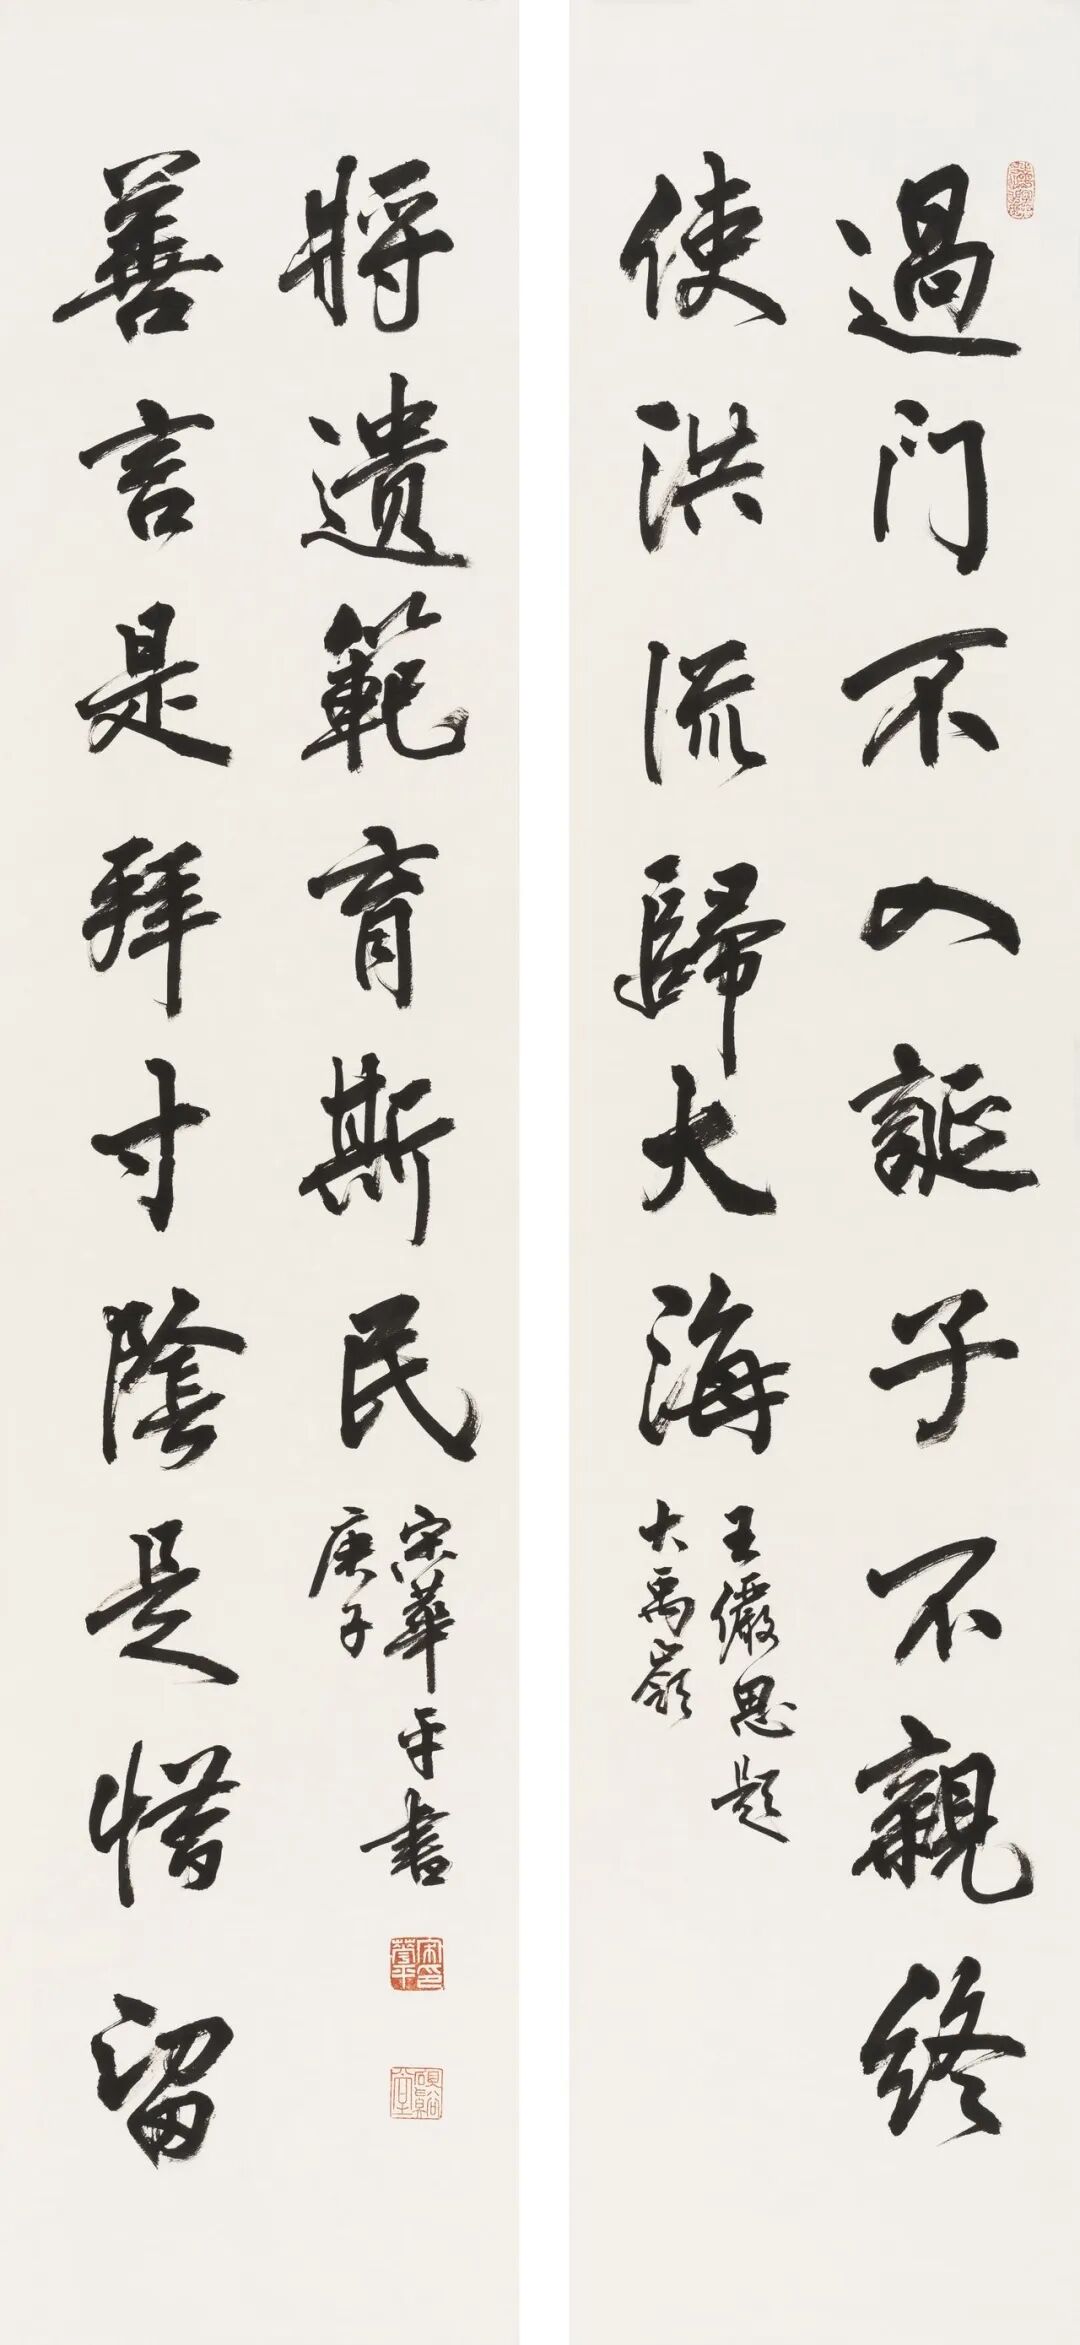 過門不入誕子不親終
使洪流歸大海
王儼思題
大禹嶺
善言是拜寸陰是惜留
將遺範育斯民
庚子
宋華平書
宋印
華平